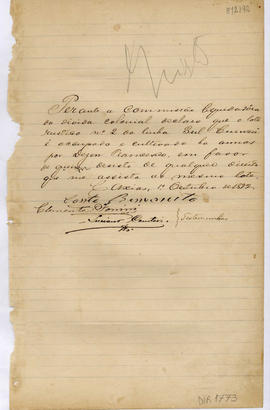 Visto
Perante a Commissão liquidadora
da divida colonial declaro que o lote
rustico nº 2 da Linha Sul
é occupado e cultivado ha annos
por Francesco, em favor
de quem desisto de qualquer direito
que me assista ao mesmo lote.
Caxias, 1º Outubro de 1892.
Conte Benvenuto
Clemente
Luciano
Testemunhas
DIR 1773